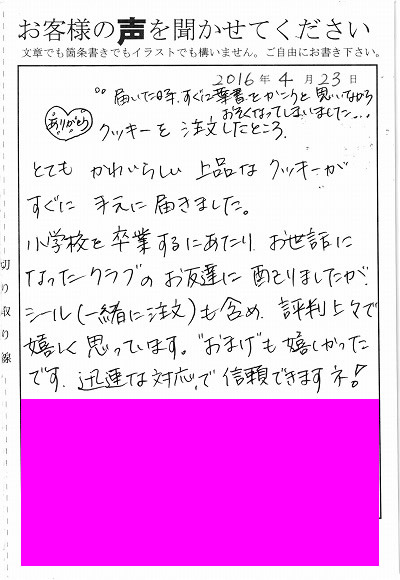 お客様の声を聞かせてください
文章でも箇条書きでもイラストでも構いません。ご自由にお書き下さい。
2016年 4月 23日
届いた時、すぐに葉書をかこうと思いながら
おそくなってしまいました...
ありがとう
クッキーを注文したところ、
とても かわいらしい 上品な クッキーが
すぐに 手元に 届きました。
小学校を卒業するにあたり お世話に
なったクラブの お友達に 配りましたが、
シール(一緒に注文)も含め、評判上々で
嬉しく 思っています。"おまけ"も嬉しかった
です。迅速な対応、で 信頼できますネ!
切り取り線